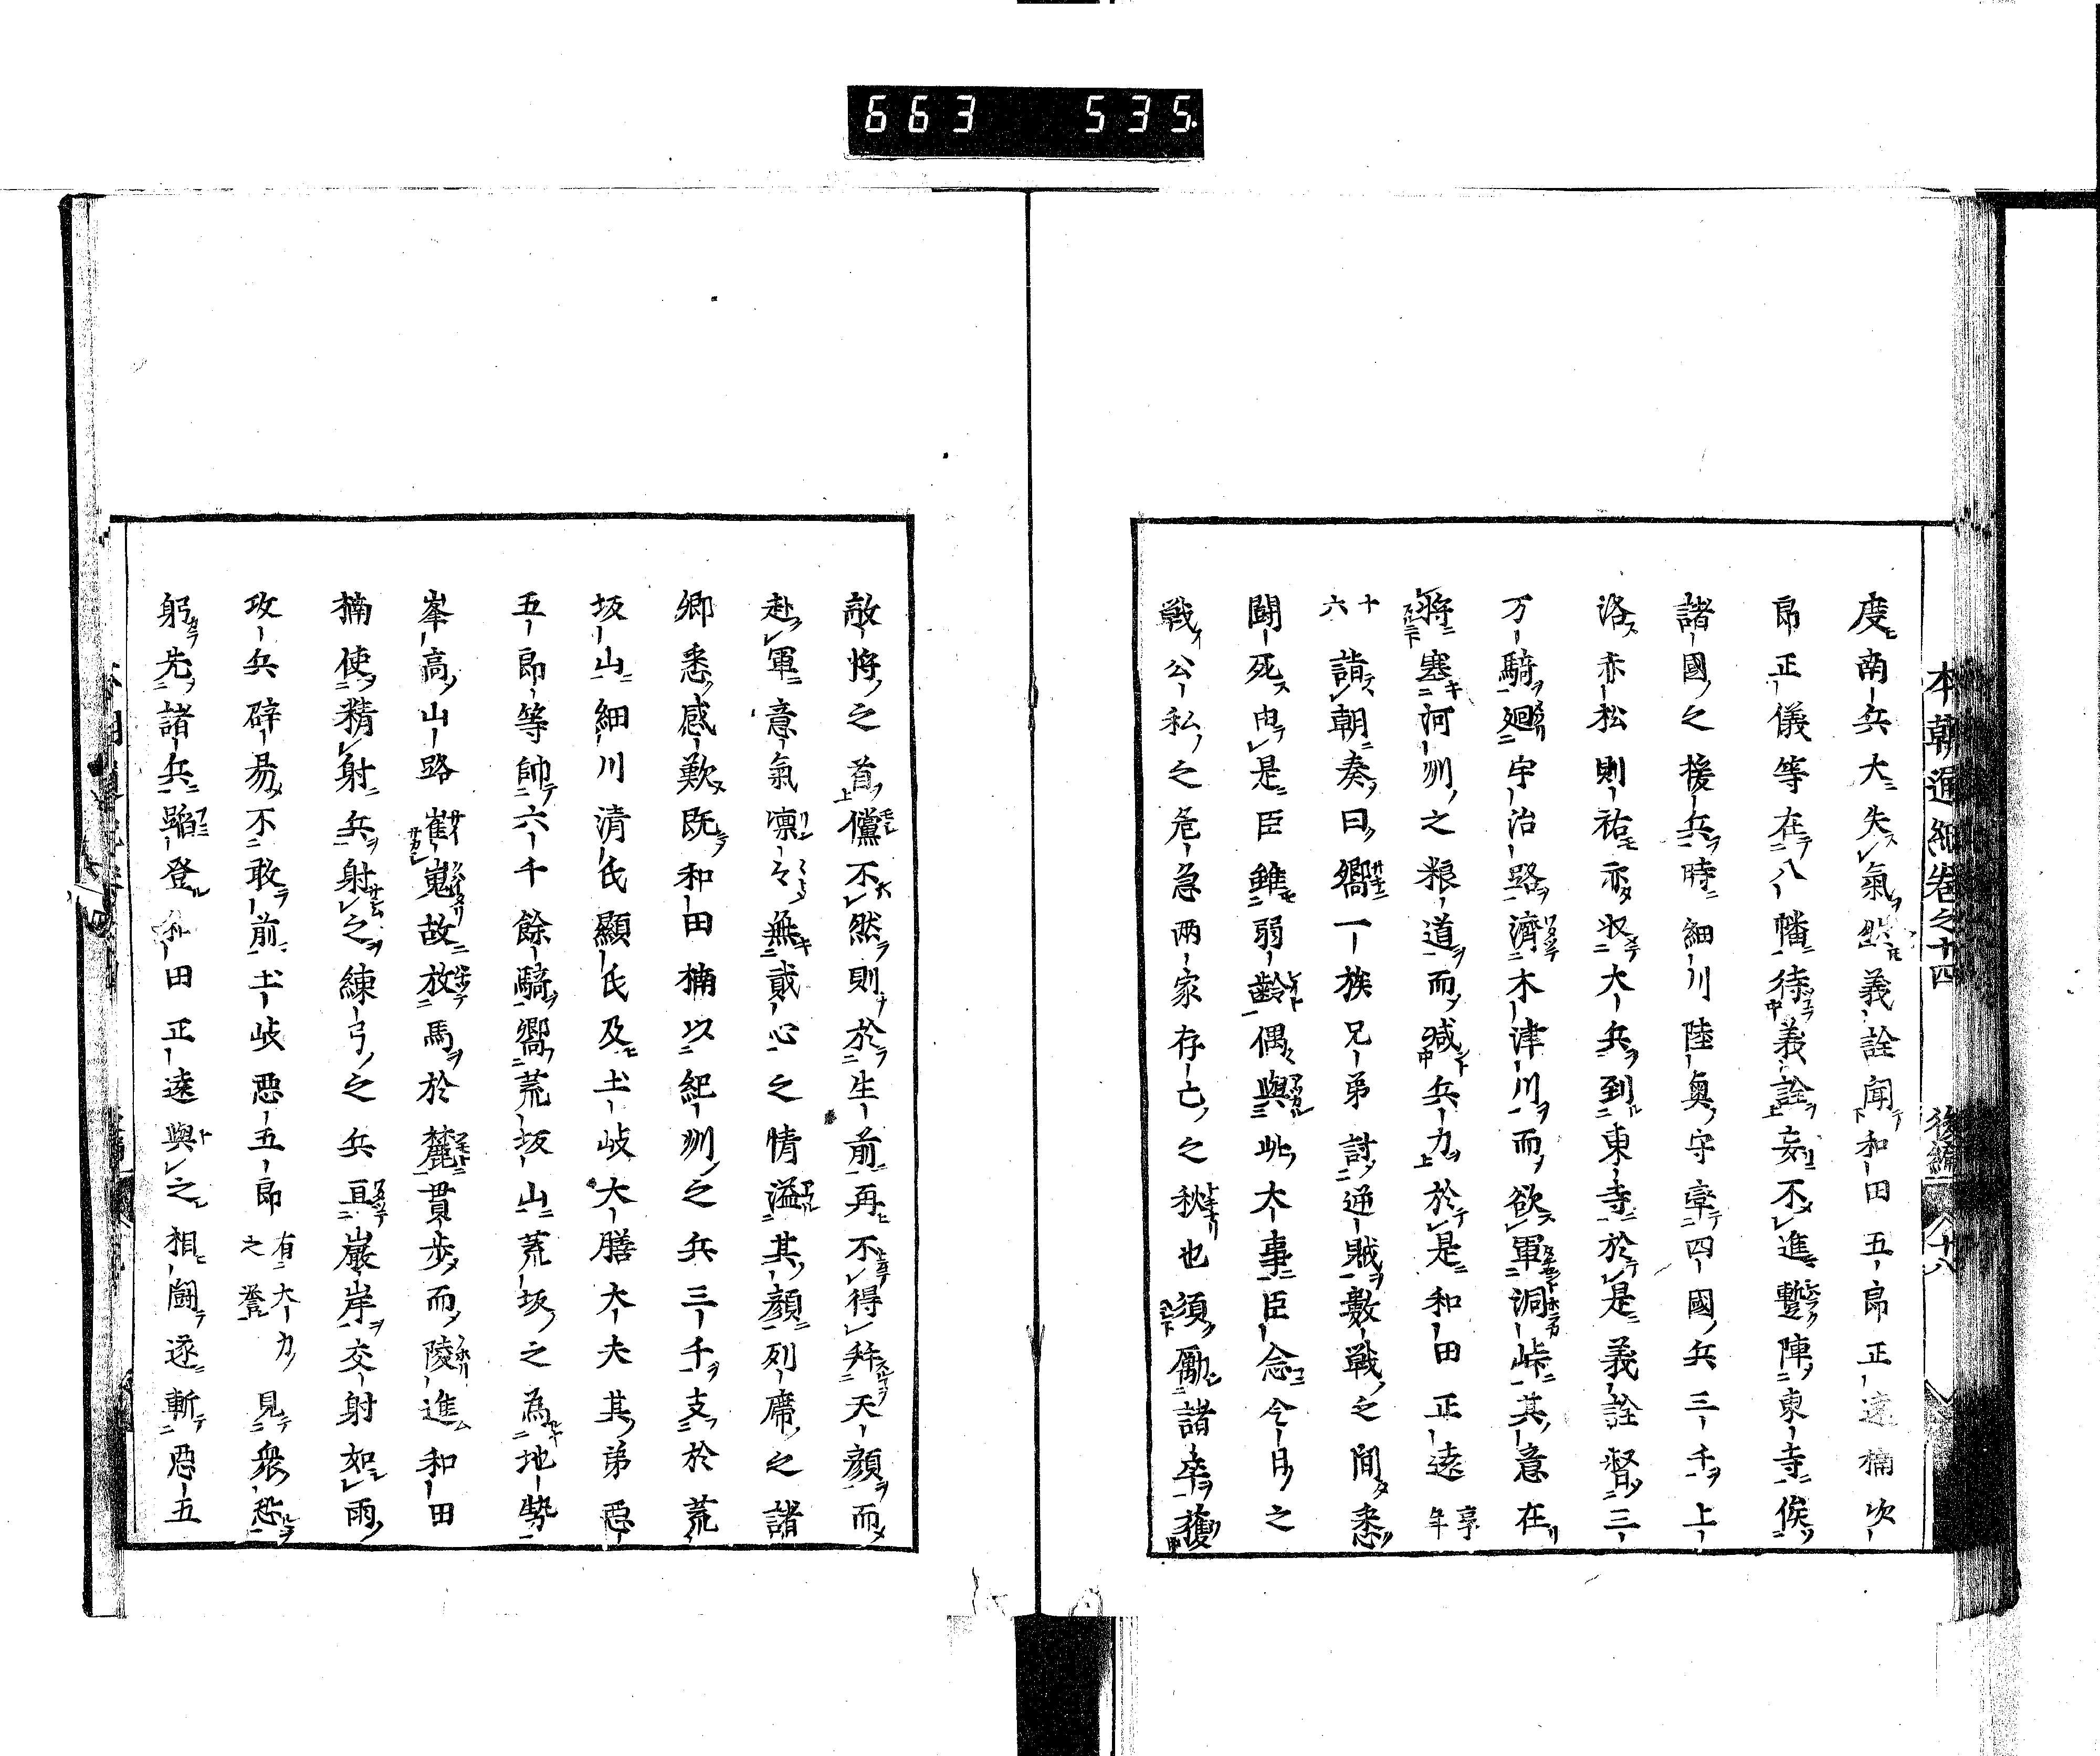 663 535
本朝通紀卷之十四 後編 十八
度南兵大失氣然義詮聞和田五郎正遠楠次
郎正儀等在八幡待義詮妄不進蹔陣東寺俟
諸國之援兵時細川陸奧守率四國兵三千上
洛亦松則祐亦收大兵到東寺於是義詮督三
万騎廻宇治路濟木津川而欲軍洞峠其意在
將塞河州之粮道而減兵力於是和田正遠年享
十六詣朝奏曰嚮一族兄弟討逆賊數戰之間悉
鬪死由是臣雖弱齡偶與此大事臣念今日之
戰公私之危急兩家存亡之秋也須勵諸卒獲
敵將之首儻不然則於生前再不得拜天顔而
赴軍意氣凛々無貳心之情溢其顔列席之諸
卿悉感歎既和田楠以紀州之兵三千支於荒
坂山細川清氏顯氏及土岐大膳大夫其弟惡
五郎等帥六千餘騎嚮荒坂山荒坂之為地勢
峯高山路崔嵬故放馬於麓貫步而陵進和田
楠使精射兵射之練弓之兵亘巖岸交射如雨
攻兵辟易不敢前土岐惡五郎有大力之譽見衆恐
躬先諸兵蹈登和田正遠與之相鬪遂斬惡五